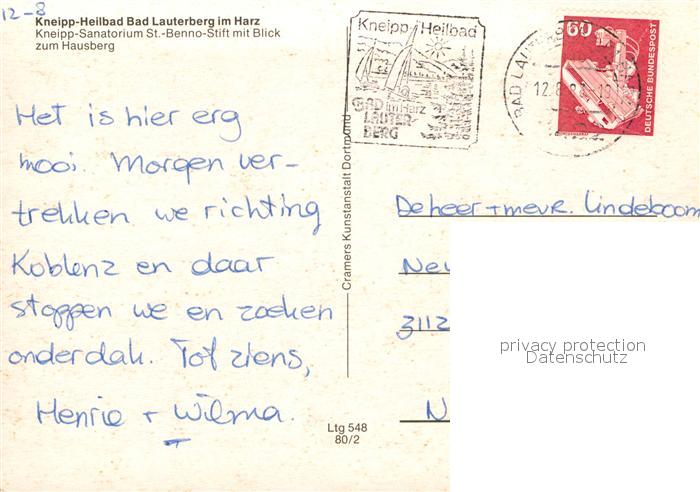 12-8
Kneipp-Heilbad Bad Lauterberg im Harz
Kneipp-Sanatorium St.-Benno-Stift mit Blick
zum Hausberg
Kneipp-Heilbad
BAD im Harz
LAUTER-
BERG
BAD LAUTER
12.8.
60
DEUTSCHE BUNDESPOST
Het is hier erg
mooi. Morgen ver-
trekken we richting
Koblenz en daar
stoppen we en zoeken
onderdak. Tot ziens,
Henrie + Wilma.
Cramers Kunstanstalt Dortmund
Ltg 548
80/2
De heer + mevr. Lindeboom
3112
N
privacy protection
Datenschutz